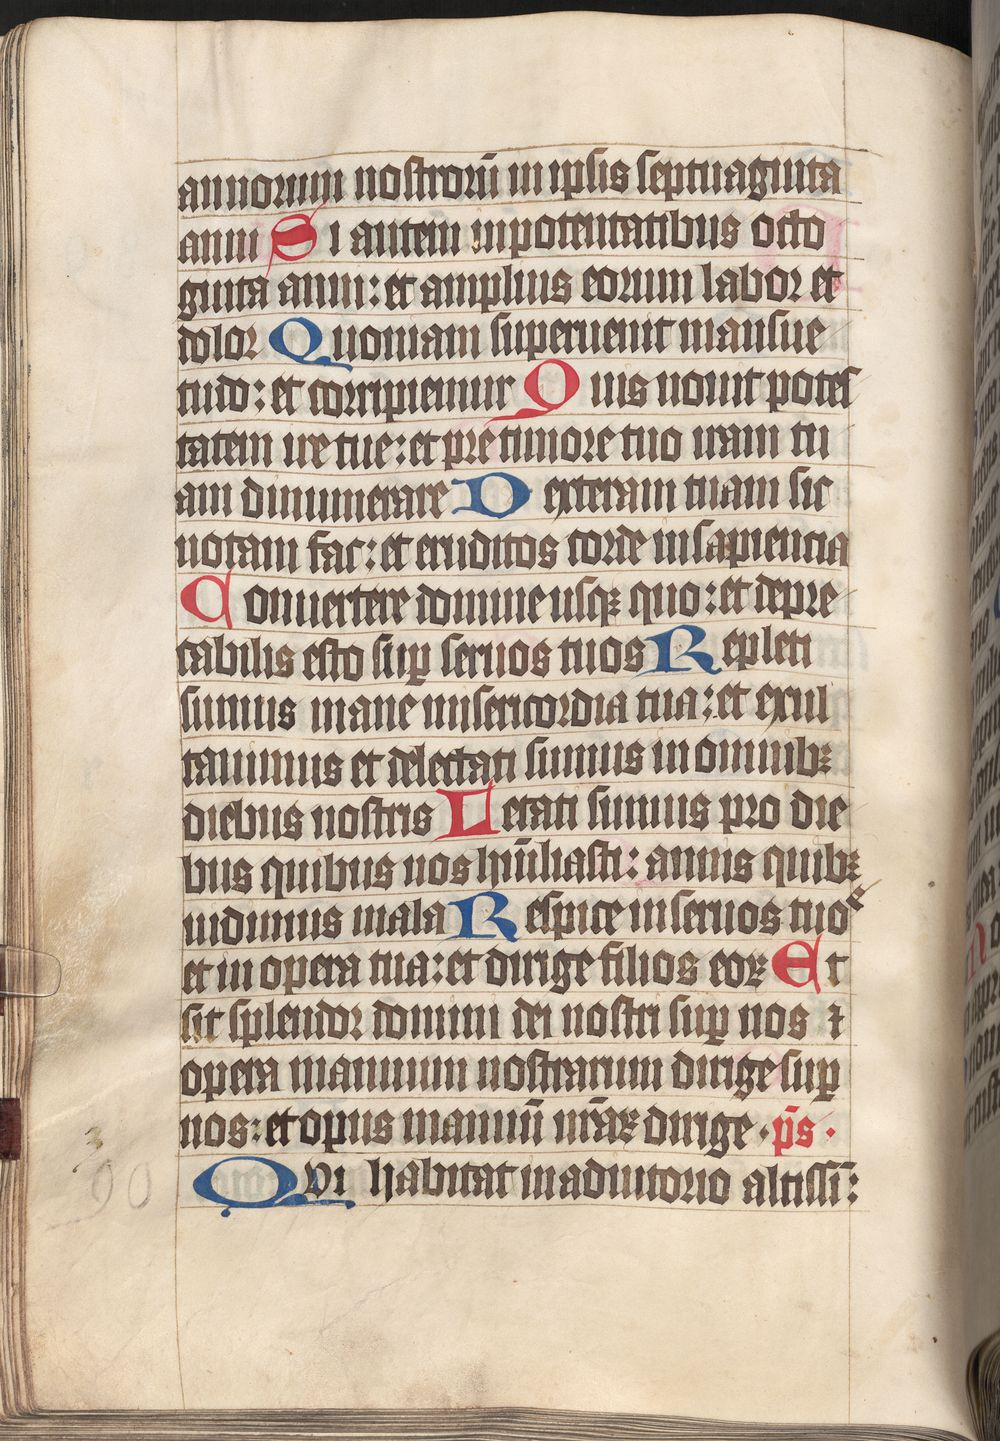 annorum nostrorū in ipsis septuaginta
anni Si autem inpotentatibus octo
ginta anni: et amplius eorum labor et
dolor Quoniam superuenit mansue
tudo: et corripiemur Quis nouit potes
tatem ire tue: et pre timore tuo iram tu
am dinumerare Dexteram tuam sic
notam fac: et eruditos corde in sapiencia
Conuertere domine usqꝫ quo: et depre
cabilis esto suꝑ seruos tuos Repleti
sumus mane misericordia tua: et exul
tauimus et delectati sumus in omnibꝫ
diebus nostris Letati sumus pro die
bus quibus nos hūiliasti: annis quibꝫ
uidimus mala Respice in seruos tuos
et in opera tua: et dirige filios eoꝝ Et
sit splendor domini dei nostri suꝑ nos ⁊
opera manuum nostrarum dirige suꝑ
nos: et opus manuū nr̄aꝝ dirige · p̄s ·
QVi habitat in adiutorio altissī:
90